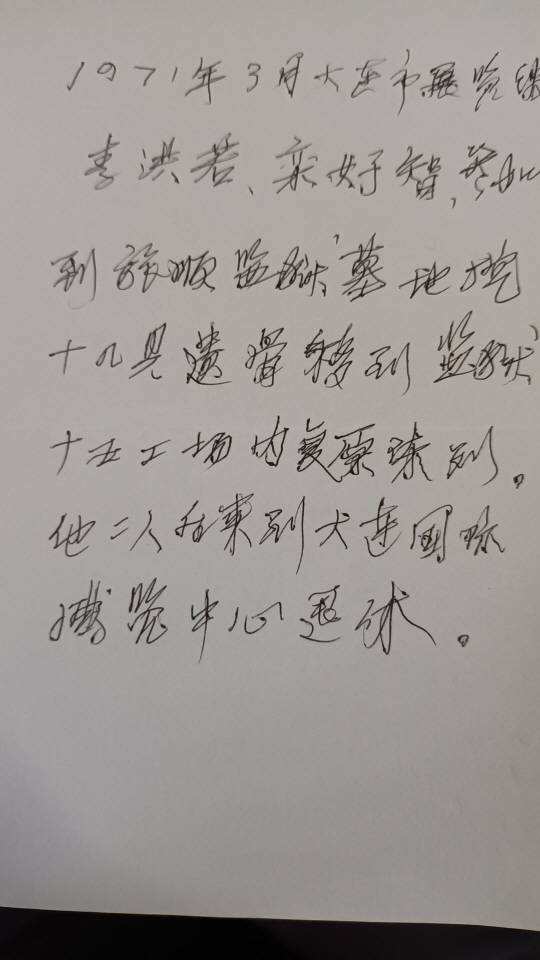 1971年3月大连市展览
李洪若、栾好智,
到旅顺监狱墓地挖
十几具遗骨移到监狱
十五工场内复原陈列。
他二人后来到大连国际
博览中心退休。